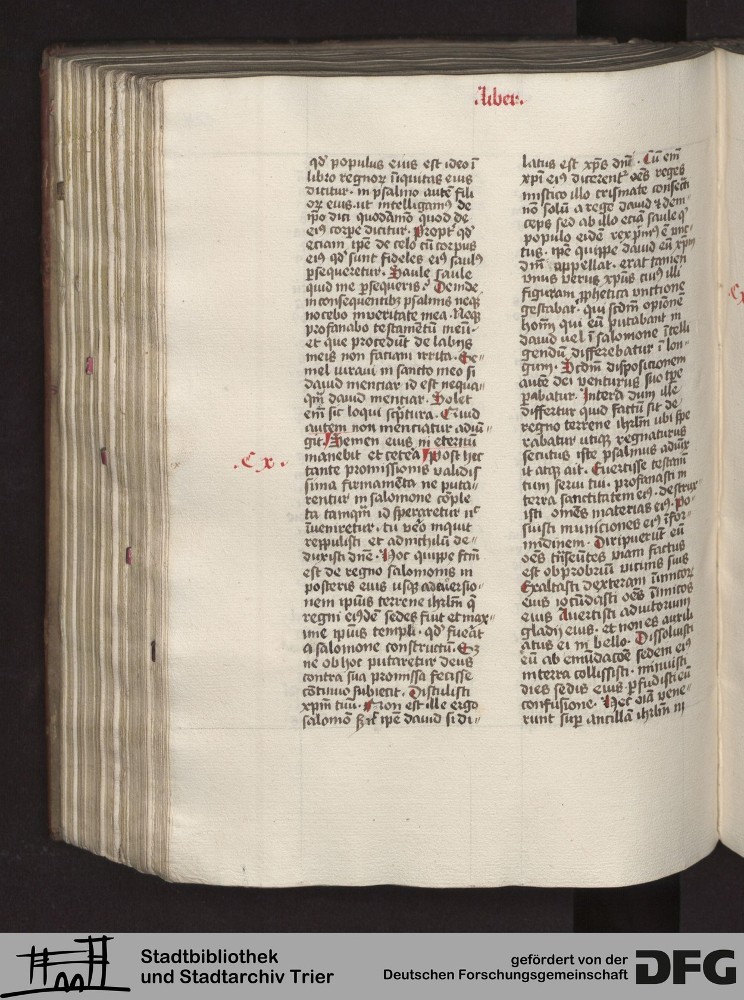 .liber.
qd' populus eius est ideo ī
libro regnoꝝ iīquitas eius
dicitur · in psalmo autē fili
oꝝ eius · ut intelligam⁹ de
ip̄o dici quodāmō quod de
ei⁹ corpe dicitur · Propt' qd'
eciam ip̄e de celo cū corpus
ei⁹ qd' sunt fideles ei⁹ saul⁹
ꝑsequeretur · Saule saule
quid me ꝑsequeris · Deinde
in consequentibꝫ psalmis neqꝫ
nocebo in veritate mea · Neqꝫ
profanabo testamētū meū ·
et que procedūt de labijs
meis non faciam irrita · Se⸗
mel iuravi in sancto meo si
dauid menciar id est nequa⸗
qm̄ dauid menciar · Solet
em̄ sic loqui scͥptura · Quid
autem non menciatur adiū⸗
git · Semen eius in eternū
manebit et cetera Post hec
.Cx.
tante promissionis validis
sima firmamēta ne puta⸗
rentur in salomone cōple
ta tamqm̄ id speraretur nͨ
īueniretur · tu vēo inquit
reppulisti et ad nichilū de⸗
duxisti dn̄e · Hoc quippe fcm̄
est de regno salomonis in
posteris eius usqꝫ ad euersio⸗
nem ipius terrene ihrlm̄ q̄
regni eiꝰdē sedes fuit et max⸗
ime ipius templi · qd' fuēat
a salomone constructū · Sꝫ
ne ob hoc putaretur deus
contra sua promissa fecisse
cōtinuo subiecit · Distulisti
xpm̄ tuū · Non est ille ergo
salomō ip̄e dauid si di⸗
latus est xp̄s dnī · Cū em̄
xpi ei⁹ dicerent' oēs reges
mistico illo crismate consecͣti
nō solū a rege dauid ⁊ dein⸗
ceps sed ab illo eciā saule qͥ
populo eidē rex pͥm⁹ ē vnc⸗
tus · ip̄e quippe dauid eū xpm̄
dnī appellat · erat tamen
vnus verus xp̄us cui⁹ illi
figuram ꝓphetica vnctione
gestabat · qui scdm̄ opiōne
hoīm qui eū putabant in
dauid uel ī salomone ītelli
gendū differebatur ī lon⸗
gum · Scdm̄ disposicionem
autē dei venturus suo tp̄e
ꝑabatur · Interea dum ille
differtur quid factū sit de
regno terrene ihrlm̄ ubi spe
rabatur utiqꝫ regnaturus
secutus iste psalmus adiūx
it atqꝫ ait · Euertisse testam̄
tum serui tui · profanasti in
terra sanctitatem ei⁹ · destrux⸗
isti omēs materias ei⁹ · Po⸗
suisti municiones ei⁹ ī for⸗
midinem · Diripuerūt eū
oēs tn̄seūtes viam factus
est obprobriū vicinis suis
Exaltasti dexteram īimicoꝝ
eius iocūdasti oēs īimicos
eius Auertisti adiutorium
gladij eius · et non es auxili
atus ei in bello · Dissoluisti
eū ab emūdacōe sedem ei⁹
in terra collisisti · minuisti
dies sedis eius ꝑfudisti eū
confusione · Hec oīa vene⸗
runt suꝑ ancillā ihrlm̄ in
Stadtbibliothek
und Stadtarchiv Trier
gefördert von der
Deutschen Forschungsgemeinschaft
DFG